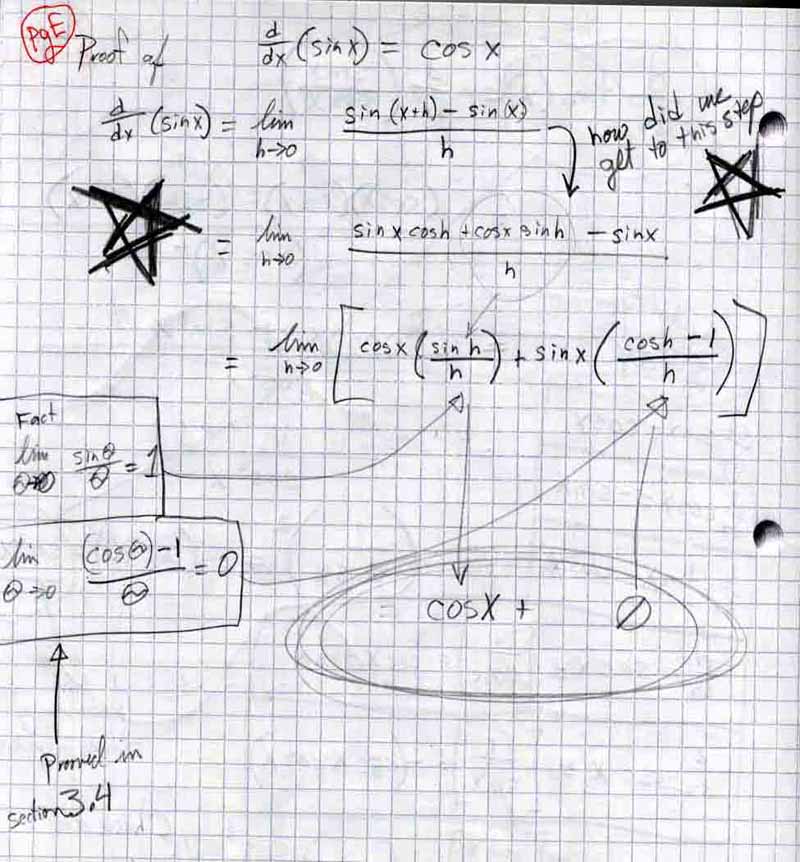 pg E
Proof of d/dx (sin x) = cos x
d/dx (sin x) = lim h→0 (sin (x+h) − sin (x))/h
how did we
get to this step
= lim h→0 (sin x cosh + cosx sinh − sinx)/h
= lim h→0 [cosx (sin h/h) + sinx (cosh − 1/h)]
Fact
lim θ→0 sinθ/θ = 1
lim θ→0 (cosθ) − 1/θ = 0
= cosx + ∅
Prooved in
section 3.4